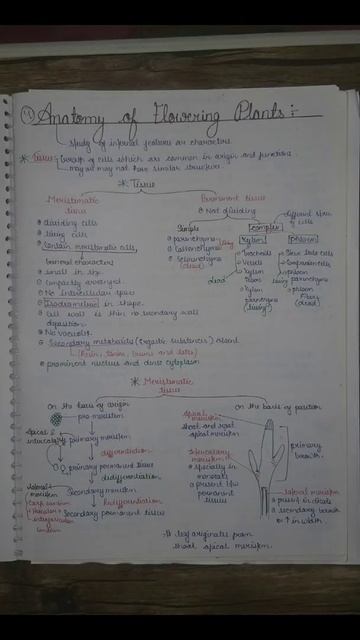 Anatomy of Flowering Plants :-
Study of internal features or characters
* Tissue - Group of cells which are common in origin and function.
may or may not have similar structure.
* Tissue
Meristematic tissue
dividing cells
living cells
contain meristematic cells,
General characters
small in size
compactly arranged.
No intercellular space
Isodiametric in shape.
cell wall is thin, no secondary wall
deposition.
No vacuole.
Secondary metabolites (Ergastic substances) absent
prominent nucleus and dense cytoplasm
Permanent tissue
Not dividing
Simple
parenchyma
collenchyma
living
(dead)
complex
different types
of cells
Xylem
Tracheids
Vessels
xylem
xylem
parenchyma
(living)
dead
Phloem
Sieve tube cells
companion cells
phloem
parenchyma
phloem
fibers
(dead)
living
* Meristematic
tissue
On the basis of origin
pro meristem
primary meristem
differentiation
primary permanent tissue
dedifferentiation
Secondary meristem
Redifferentiation
Secondary permanent tissue
apical &
intercalary
lateral
meristem
On the basis of position
apical
meristem
shoot and root
apical meristem
Intercalary
meristem
specially in
monocots
present b/w
permanent
tissues
primary
growth
lateral meristem
present in dicots
secondary growth
or ↑ in width
leaf originates from
shoot apical meristem.